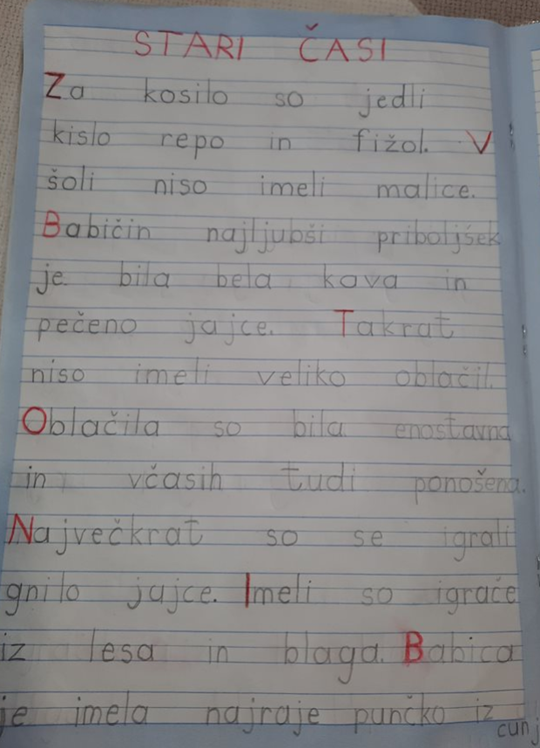 STARI ČASI
Za kosilo so jedli
kislo repo in fižol. V
šoli niso imeli malice.
Babičin najljubši priboljšek
je bila bela kava in
pečeno jajce. Takrat
niso imeli veliko oblačil.
Oblačila so bila enostavna
in včasih tudi ponošena.
Največkrat so se igrali
gnilo jajce. Imeli so igrače
iz lesa in blaga. Babica
je imela najraje punčko iz
cunj